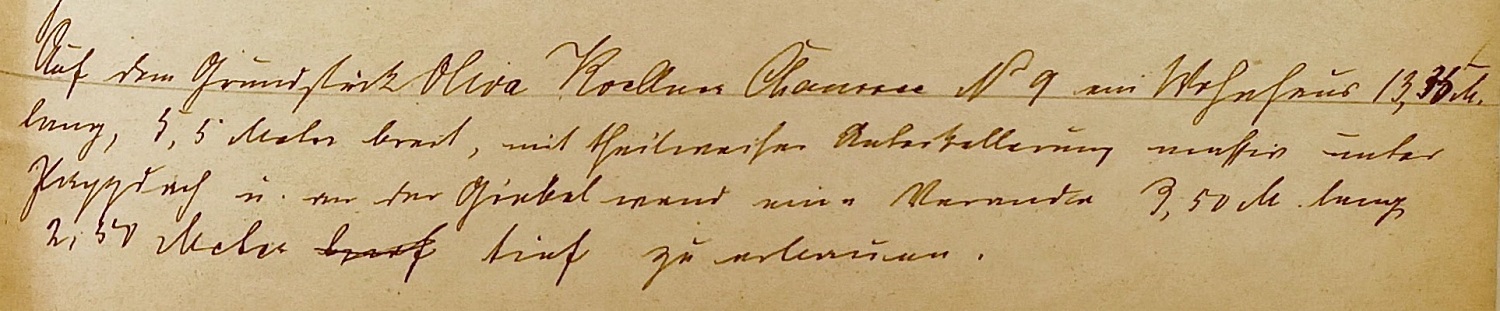 Auf dem Grundstück Oliva Koellner Chaussee No 9 ein Wohnhaus 13,35 M.
lang, 5,5 Meter breit, mit theilweiser Unterkellerung massiv unter
Pappdach u. an der Giebelwand eine Veranda 3,50 M. lang
2,50 Meter breit tief zu erbauen.